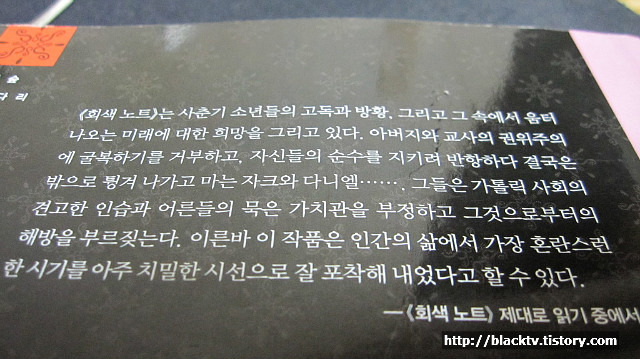 숲
다 리
《회색 노트》는 사춘기 소년들의 고독과 방황, 그리고 그 속에서 움터
나오는 미래에 대한 희망을 그리고 있다. 아버지와 교사의 권위주의
에 굴복하기를 거부하고, 자신들의 순수를 지키려 반항하다 결국은
밖으로 튕겨 나가고 마는 자크와 다니엘……. 그들은 가톨릭 사회의
견고한 인습과 어른들의 묵은 가치관을 부정하고 그것으로부터의
해방을 부르짖는다. 이른바 이 작품은 인간의 삶에서 가장 혼란스런
한 시기를 아주 치밀한 시선으로 잘 포착해 내었다고 할 수 있다.
—《회색 노트》 제대로 읽기 중에서
http://blacktv.tistory.com